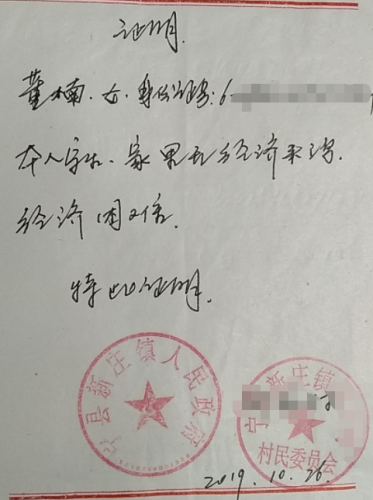 证明
董楠、女、身份证号:6
本人务农、家里无经济来源.
经济困难.
特此证明.
宁县新庄镇人民政府
宁 新庄镇
村民委员会
2019.10.26.